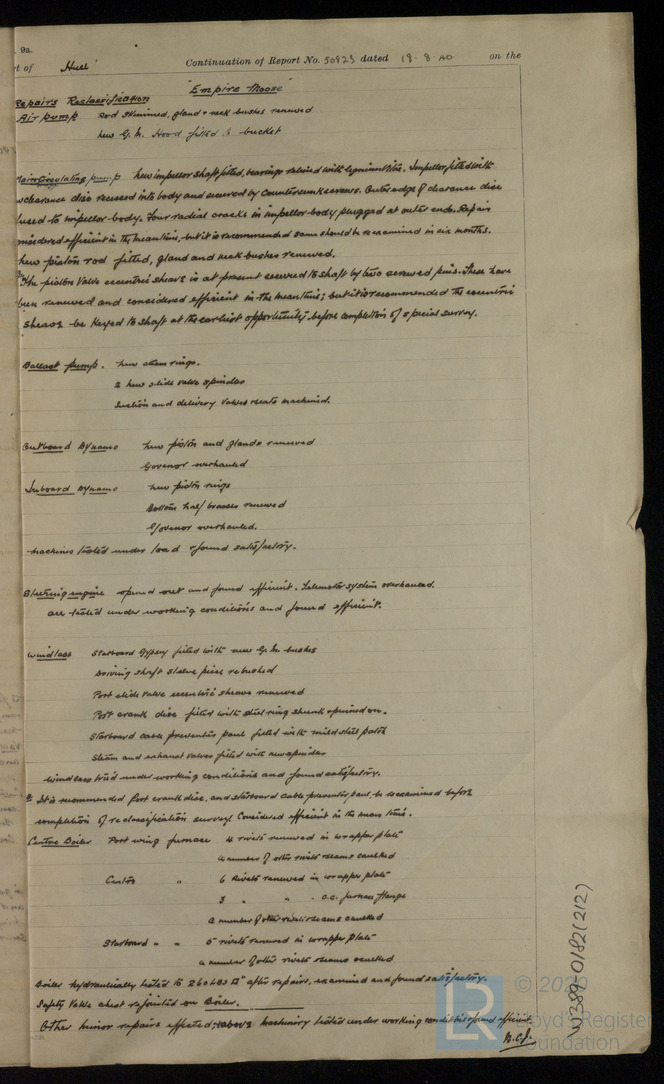 9a.
rt of Hull Continuation of Report No. 50823 dated 19.8.40 on the
"Empire Moose"
Repairs Reclassification
Air pump Rod skimmed, gland & neck bushes renewed
New G.M. Hood fitted to bucket
Main Circulating pump New impellor shaft fitted, bearings relined with lignum vitae. Impellor fitted with
clearance disc recessed into body and secured by countersunk screws. Outer edge of clearance disc
fused to impellor body. Four radial cracks in impellor body plugged at outer ends. Repair
considered efficient in the meantime, but it is recommended same should be reexamined in six months.
New piston rod fitted, gland and neck bushes renewed.
The piston valve eccentric sheave is at present secured to shaft by two screwed pins. These have
been renewed and considered efficient in the meantime; but it is recommended the eccentric
sheave be keyed to shaft at the earliest opportunity before completion of special survey.
Ballast pump. New steam rings.
2 new slide valve spindles
Suction and delivery valves seats machined.
Outboard Dynamo New piston and glands renewed
Governor overhauled
Inboard Dynamo New piston rings
Bottom half brasses renewed
Governor overhauled.
Machines tested under load & found satisfactory.
Steering engine opened out and found efficient. Telemotor system overhauled.
all tested under working conditions and found efficient.
Windlass Starboard Gypsey fitted with new G.M. bushes
Driving shaft sleeve piece rebushed
Port slide valve eccentric sheave renewed
Port crank disc fitted with steel ring shrunk & pinned on.
Starboard cable preventer paul fitted with mild steel patch
Steam and exhaust valves fitted with new spindles
Windlass tried under working conditions and found satisfactory.
It is recommended Port crank disc, and starboard cable preventer paul, be reexamined before
completion of reclassification survey. Considered efficient in the mean time.
Centre Boiler Port wing furnace 4 rivets renewed in wrapper plate
a number of other rivets & seams caulked
Centre " 6 Rivets renewed in wrapper plate
3 " " " C.C. furnace flange
a number of other rivets & seams caulked
Starboard " " 5 rivets renewed in wrapper plate
a number of other rivets & seams caulked
Boiler hydraulically tested to 260 LBS □" after repairs, examined and found satisfactory.
Safety valve chest rejointed on Boiler.
Other minor repairs effected, above machinery tested under working conditions & found efficient.
W389-0182(212)
© 2020
LR
Lloyd's Register
Foundation